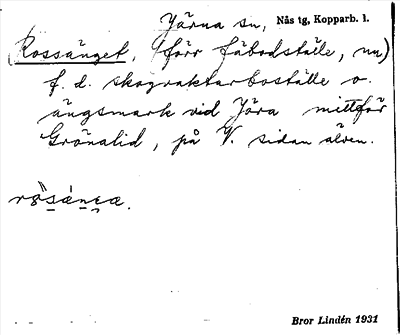 Järna sn, Nås tg, Kopparb. l.
(Rossänget, (förr fäbodställe, nu)
f. d. skogvaktarboställe o.
ängsmark vid Jöra mittför
Grönalid, på V. sidan älven.
Bror Lindén 1931